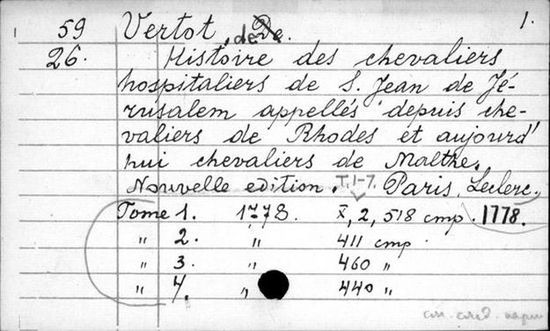 59 Vertot, de. 1.
26. Histoire des chevaliers
hospitaliers de S. Jean de Jé-
rusalem appellés depuis che-
valiers de Rhodes et aujourd'
hui chevaliers de Malthe.
Nouvelle edition. T. 1-7. Paris, Leclerc.
Tome 1. 1778. X, 2, 518 стр. 1778.
" 2. " 411 стр.
" 3. " 460 "
" 4. " 440 "
см. след. карт